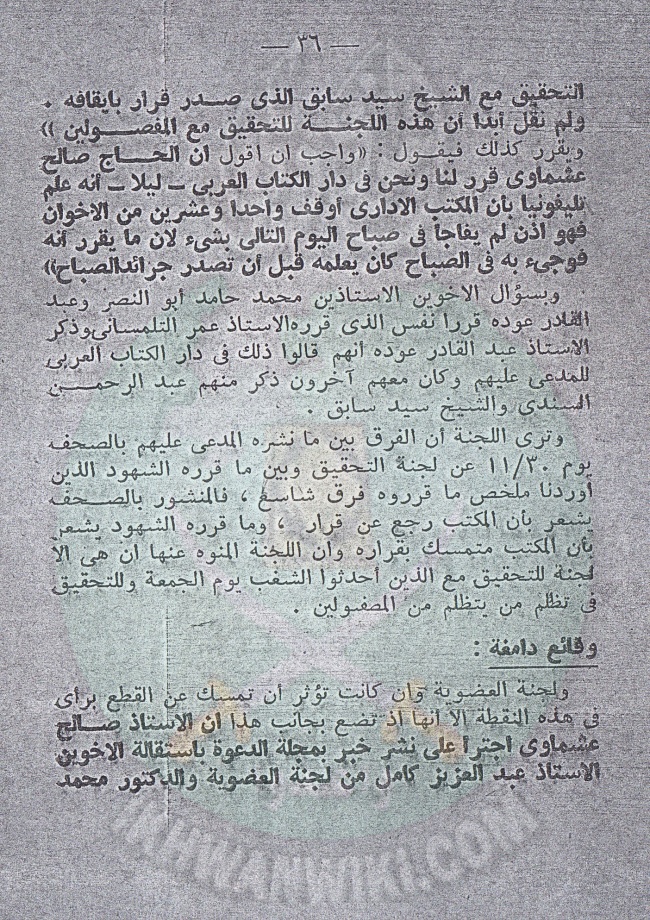 — ٣٦ —
التحقيق مع الشيخ سيد سابق الذى صدر قرار بايقافه .
ولم نقل أبدا أن هذه اللجنة للتحقيق مع المفصولين ))
ويقرر كذلك فيقول : ((واجب ان اقول ان الحاج صالح
عشماوى قرر لنا ونحن فى دار الكتاب العربى – ليلا – أنه علم
تليفونيا بأن المكتب الادارى أوقف واحدا وعشرين من الاخوان
فهو اذن لم يفاجأ فى صباح اليوم التالى بشىء لان ما يقرر أنه
فوجىء به فى الصباح كان يعلمه قبل أن تصدر جرائد الصباح))
وبسؤال الاخوين الاستاذين محمد حامد أبو النصر وعبد
القادر عوده قررا نفس الذى قرره الاستاذ عمر التلمسانى وذكر
الاستاذ عبد القادر عوده أنهم قالوا ذلك فى دار الكتاب العربى
للمدعى عليهم وكان معهم آخرون ذكر منهم عبد الرحمن
السندى والشيخ سيد سابق .
وترى اللجنة أن الفرق بين ما نشره المدعى عليهم بالصحف
يوم ١١/٣٠ عن لجنة التحقيق وبين ما قرره الشهود الذين
أوردنا ملخص ما قرروه فرق شاسع ، فالمنشور بالصحف
يشعر بأن المكتب رجع عن قرار ، وما قرره الشهود يشعر
بأن المكتب متمسك بقراره وان اللجنة المنوه عنها ان هى الا
لجنة للتحقيق مع الذين أحدثوا الشغب يوم الجمعة وللتحقيق
فى تظلم من يتظلم من المفصولين .
وقائع دامغة :
ولجنة العضوية وان كانت تؤثر أن تمسك عن القطع برأى
فى هذه النقطة الا أنها اذ تضع بجانب هذا ان الاستاذ صالح
عشماوى اجترأ على نشر خبر بمجلة الدعوة باستقالة الاخوين
الاستاذ عبد العزيز كامل من لجنة العضوية والدكتور محمد
IKHWANWIKI.COM